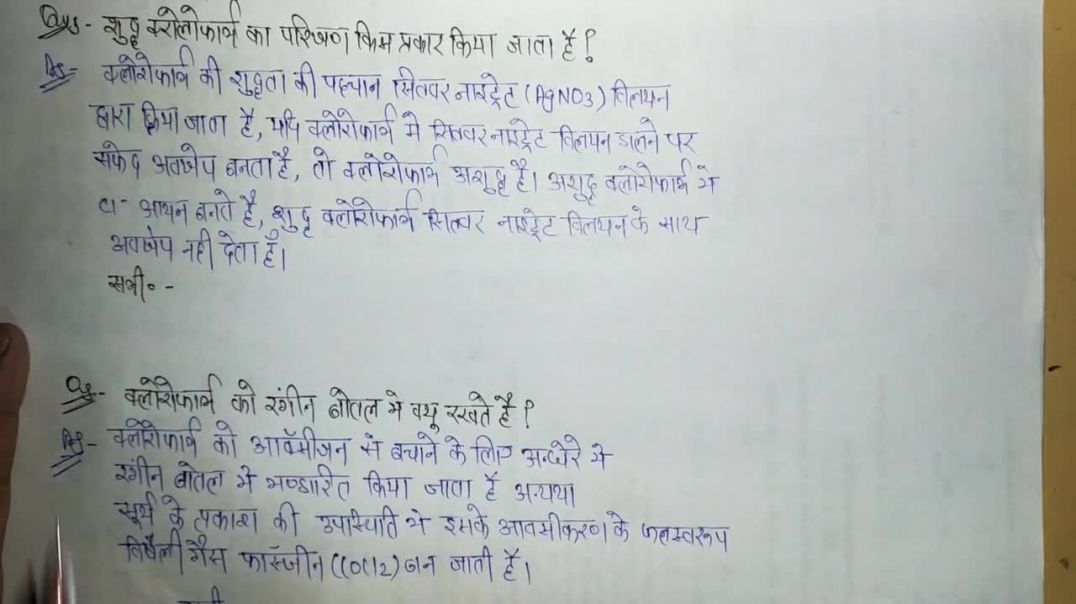 Qus - शुद्ध क्लोरोफार्म का परिक्षण किस प्रकार किया जाता है ?
As - क्लोरोफार्म की शुद्धता की पहचान सिलवर नाइट्रेट (AgNO3) विलयन
द्वारा किया जाता है, यदि क्लोरोफार्म मे सिलवर नाइट्रेट विलयन डालने पर
सफेद अवक्षेप बनता है, तो क्लोरोफार्म अशुद्ध है। अशुद्ध क्लोरोफार्म मे
Cl- आयन बनते है, शुद्ध क्लोरोफार्म सिलवर नाइट्रेट विलयन के साथ
अवक्षेप नही देता है।
समी० -
Qs - क्लोरोफार्म को रंगीन बोतल मे क्यू रखते है ?
As - क्लोरोफार्म को आक्सीजन से बचाने के लिए अन्धेरे मे
रंगीन बोतल मे भण्डारित किया जाता है अन्यथा
सूर्य के प्रकाश की उपस्थिति मे इसके आक्सीकरण के फलस्वरूप
विषैली गैस फॉस्जीन (COCl2) बन जाती है।